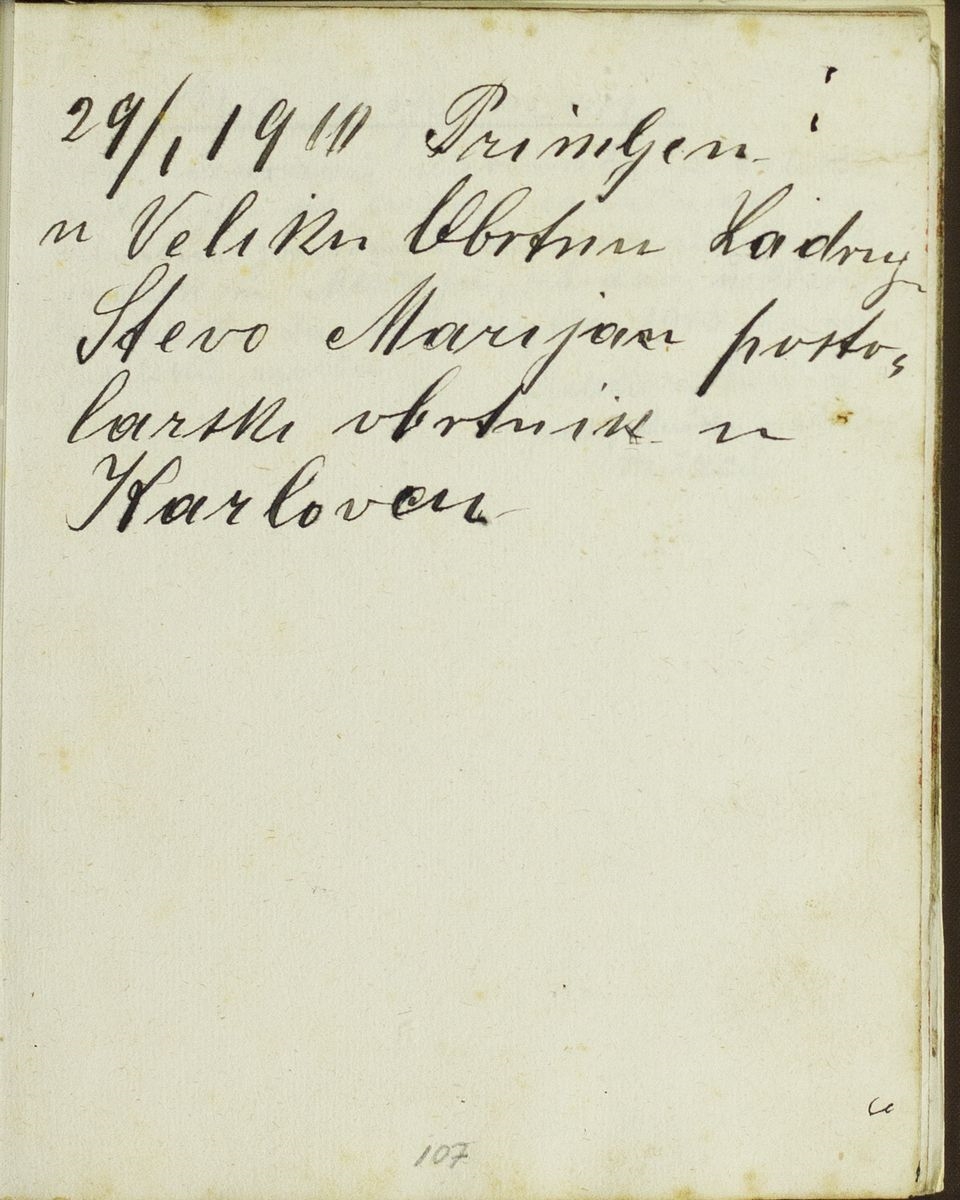 29/1 1910 Primljen
u Veliku Obrtnu Zadrug
Stevo Marijan posto„
larski obrtnik u
Karlovcu
107